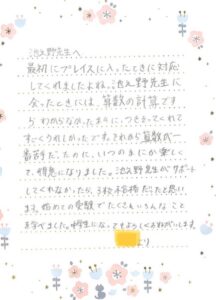 池上野先生へ
最初にプレイスに入ったときに対応
してくれましたよね。池上野先生に
会ったときには、算数の計算です
らわからなかったあの
すっごくうれしかったです。それから算数が一
番苦だったのに、いつのまにか楽しく
て、得意になりました。池上野先生がサポート
してくれなかったら、3校不合格だったと思い
ます。始めての受験でたくさんいろんなこと
を学べました。中学生になってもよろしくおねがいします。
より